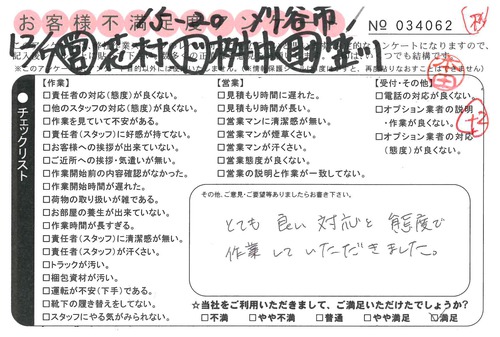 お客様不満足度アンケート
15-20 刈谷市
No 034062
チェックリスト
【作業】
□責任者の対応(態度)が良くない。
□他のスタッフの対応(態度)が良くない。
□作業を見ていて不安がある。
□責任者(スタッフ)に好感が持てない。
□お客様への挨拶が出来ていない。
□ご近所への挨拶・気遣いが無い。
□作業開始前の内容確認がなかった。
□作業開始時間が遅れた。
□荷物の取り扱いが雑である。
□お部屋の養生が出来ていない。
□作業時間が長すぎる。
□責任者(スタッフ)に清潔感が無い。
□責任者(スタッフ)が汗くさい。
□トラックが汚い。
□梱包資材が汚い。
□運転が不安(下手)である。
□靴下の履き替えをしてない。
□スタッフにやる気がみられない。
【営業】
□見積もり時間に遅れた。
□見積もり時間が長い。
□営業マンに清潔感が無い。
□営業マンが煙草くさい。
□営業マンが汗くさい。
□営業態度が良くない。
□営業の説明と作業が一致してない。
【受付・その他】
□電話の対応が良くない。
□オプション業者の説明
・作業が良くない。
□オプション業者の対応
(態度)が良くない。
その他、ご意見・ご要望等ありましたらお書き下さい。
とても良い対応と態度で
作業していただだきました。
☆当社をご利用いただきまして、ご満足いただけたでしょうか?
□不満 □やや不満 □普通 □やや満足 □満足